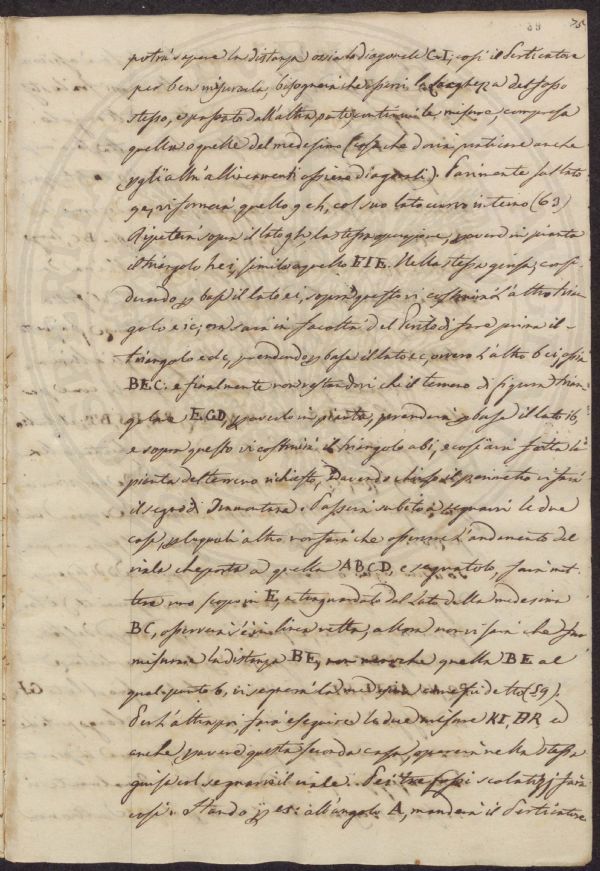 75
potrà sapere la distanza ossia la diagonale C.I; così il Perticatore
per ben misurarla, bisognerà che sperri la larghezza del fosso
stesso, e passato dall'altra parte, continui la misura, compresa
quella o quelle del medesimo (cosa che dovrà praticare anche
negli altri allineamenti ossiano diagonali). Parimente sul lato
ge, vi formerà quello g e h, col suo lato curvo interno (63)
Ripeterà sopra il lato gh, la stessa operazione, per averd in pianta
il triangolo h e i, simile a quello FIE. Nella stessa guisa, consi-
derando per base il lato ei, sopra questo vi costruirà l'altro trian-
golo e i c; ora sarà in facoltà del Perito di fare prima il
triangolo e d c, prendendo per base il lato e c, ovvero l'altro b c i, ossia
BEC: e finalmente non restandovi che il terreno di figura trian-
golare ECD, per averlo in pianta, prenderà per base il lato ib,
e sopra questo vi costruirà il triangolo a b i, e così avrà fatta la
pianta del terreno richiesto. Davendo chiuso il perimetro vi farà
il segno di Tramontana. Passerà subito a segnarvi le due
case, per le quali altro non farà che osservare l'andamento del
viale che porta a quella ABCD, e segnatolo, farà met-
tere uno scopo in E, e traguardato dal lato della medesima
BC, osserverà s'è in linea retta, allora non vi sarà che far
misurare la distanza BE, non meno che quella BE al
qual punto b, vi segnerà la medesima come si è detto (59).
Per l'altra poi, farà eseguire le due misure KI, BR ed
anche per avere questa seconda casa, opererà nella stessa
guisa col segnarvi il viale. Per tre fossi scolatizj farà
così. Stando per es: all'angolo A, manderà il Perticatore
CI